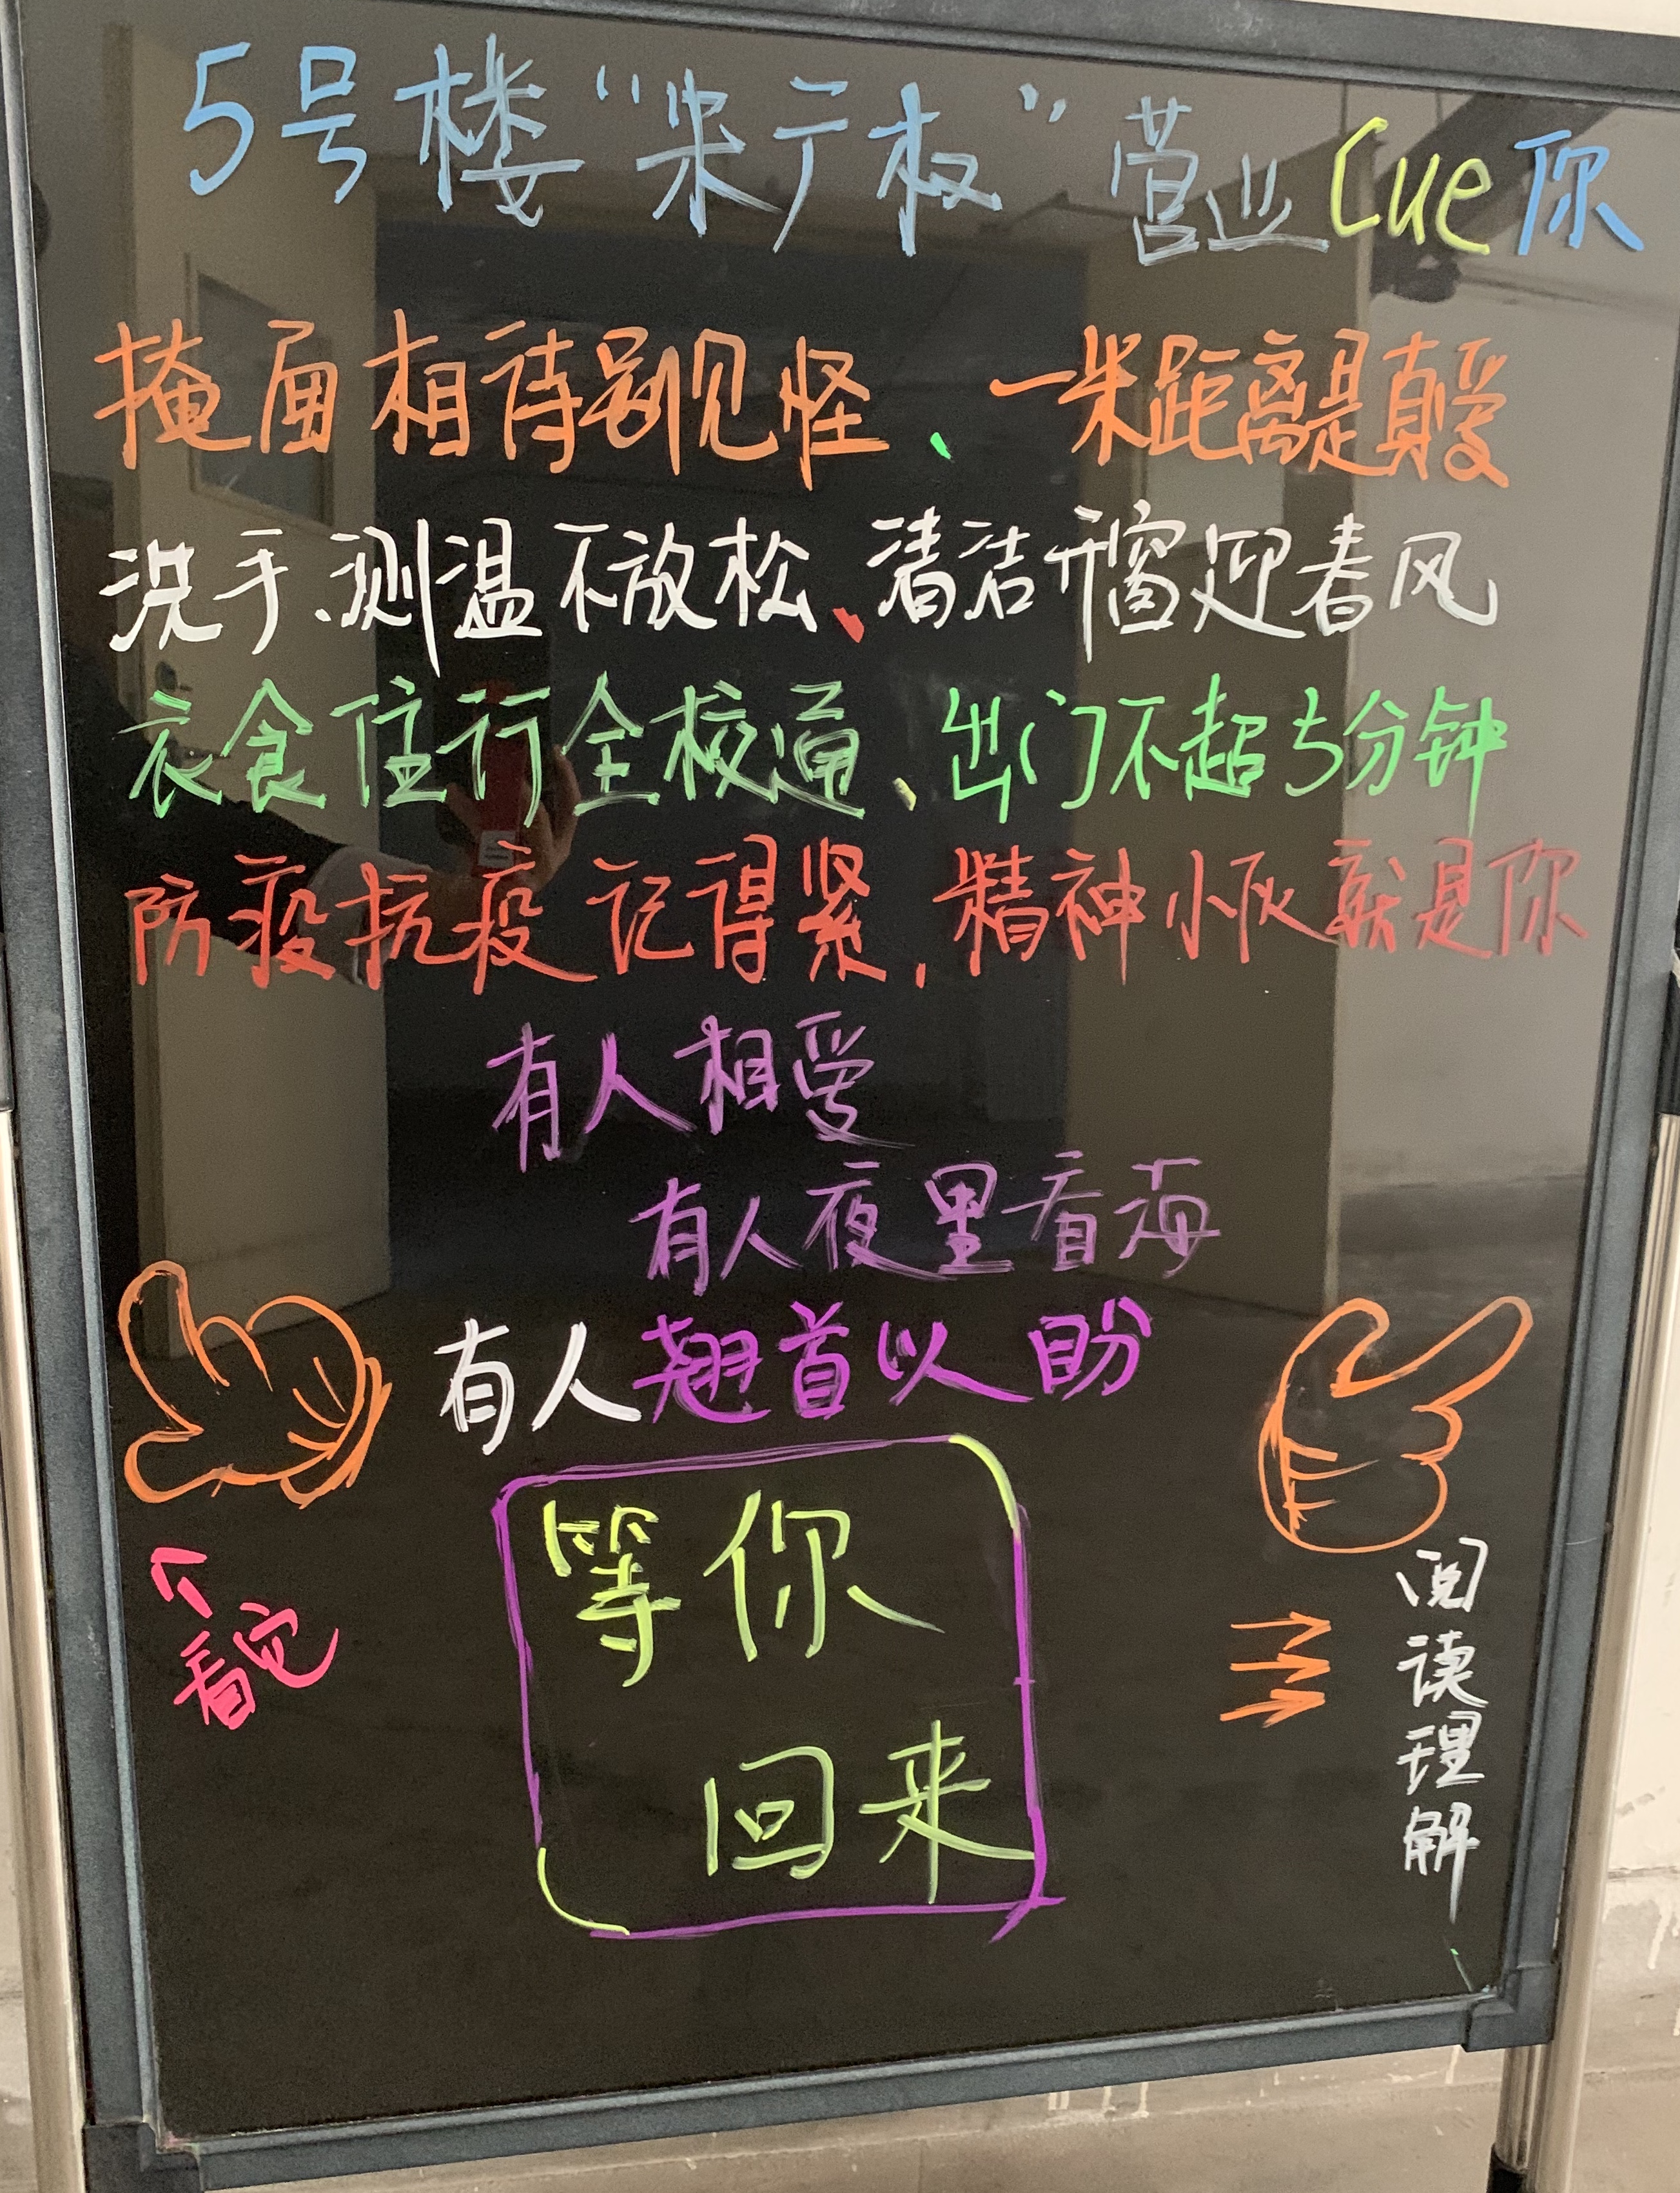 5号楼“朱广权”营业Cue你
掩面相待别见怪、一米距离是真爱
洗手测温不放松、清洁开窗迎春风
衣食住行全校通、出门不超5分钟
防疫抗疫记得紧,精神小伙就是你
有人相爱
有人夜里看海
有人翘首以盼
等你
回来
看它
阅读理解